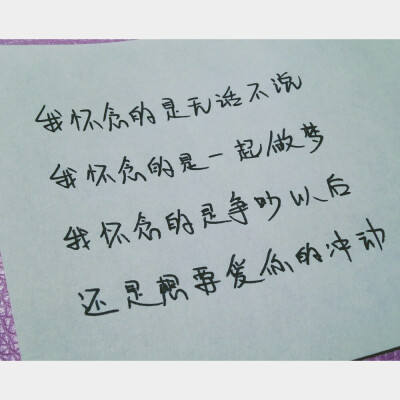 我怀念的是无话不说
我怀念的是一起做梦
我怀念的是争吵以后
还是想要爱你的冲动